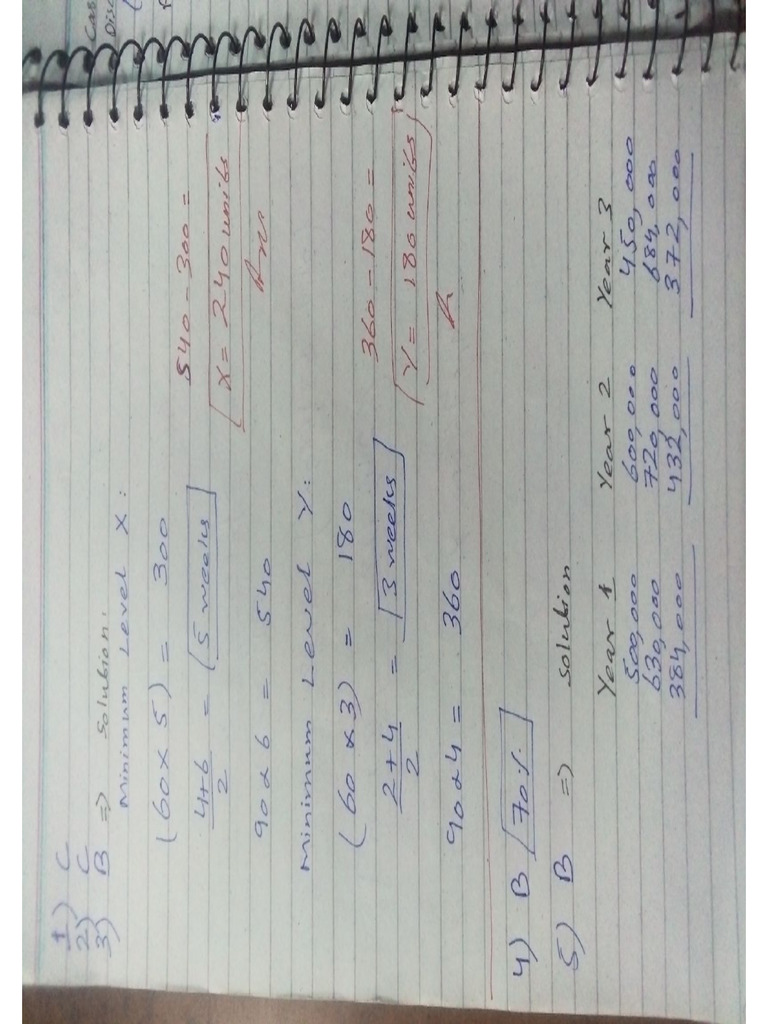 1) C
2) C
3) B => Solution:
Minimum Level X:
(60 x 5) = 300
540 - 300 =
4+6/2 = (5 weeks)
X = 240 units
90 x 6 = 540
Ans
Minimum Level Y:
(60 x 3) = 180
360 - 180 =
2+4/2 = 3 weeks
Y = 180 units
90 x 4 = 360
4) B 70%
5) B => Solution
Year 1 Year 2 Year 3
500,000 600,000 450,000
630,000 720,000 684,000
384,000 432,000 372,000
Cas
Disc